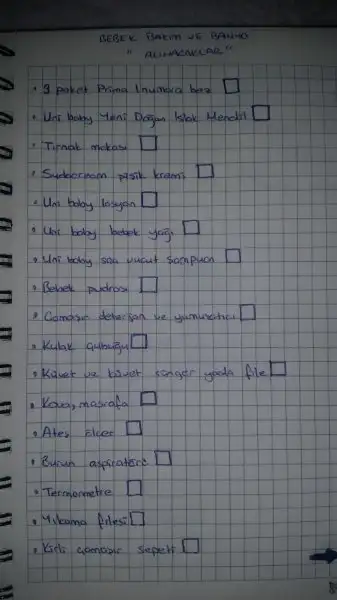 BEBEK BAKIM VE BANYO
" ALINACAKLAR "
• 3 paket Prima 1 numara bez
• Uni baby Yeni Doğan Islak Mendil
• Tırnak makası
• Sudocream pişik kremi
• Uni baby losyon
• Uni baby bebek yağı
• Uni baby saç vücut şampuan
• Bebek pudrası
• Çamaşır deterjan ve yumuşatıcı
• Kulak çubuğu
• Küvet ve küvet sünger yada file
• Kova, maşrafa
• Ateş ölçer
• Burun aspiratörü
• Termometre
• Yıkama filesi
• Kirli çamaşır sepeti